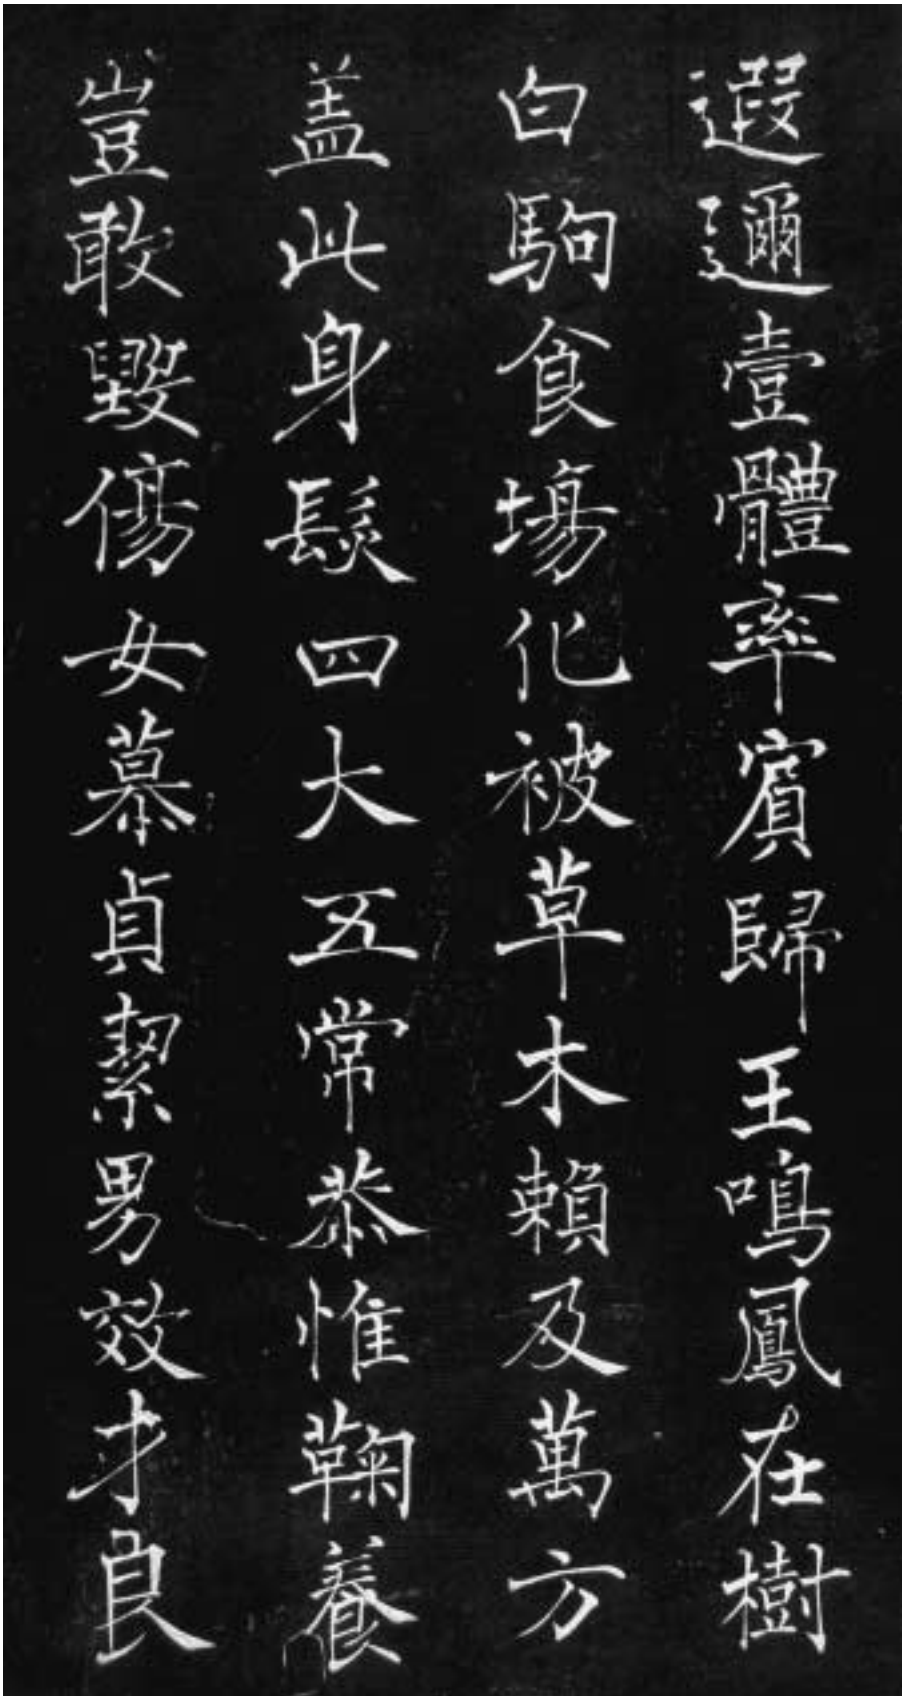 遐邇壹體率賓歸王鳴鳳在樹
白駒食場化被草木賴及萬方
盖此身髮四大五常恭惟鞠養
豈敢毀傷女慕貞絜男效才良